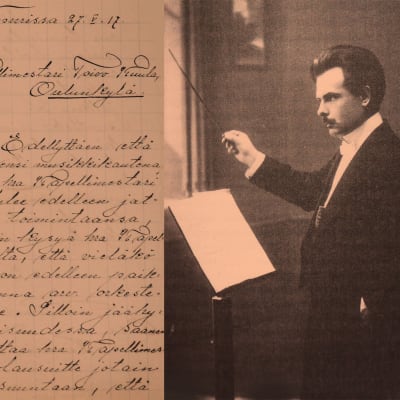 27. V. 17.
llimestari Toivo Kuula,
Oulunkylä.
Edellyttäen että
ensi musikkikautena
hra Kapellimestari
lee edelleen jat-
toimintaansa,
n kysyä hra Kapel-
ta, että vieläkö
on edelleen paik-
nna arv. orkeste-
e. Silloin jääky-
isuudessa, saanen
ttaa hra Kapellimes-
lausuitte jotain
suuntaan, että